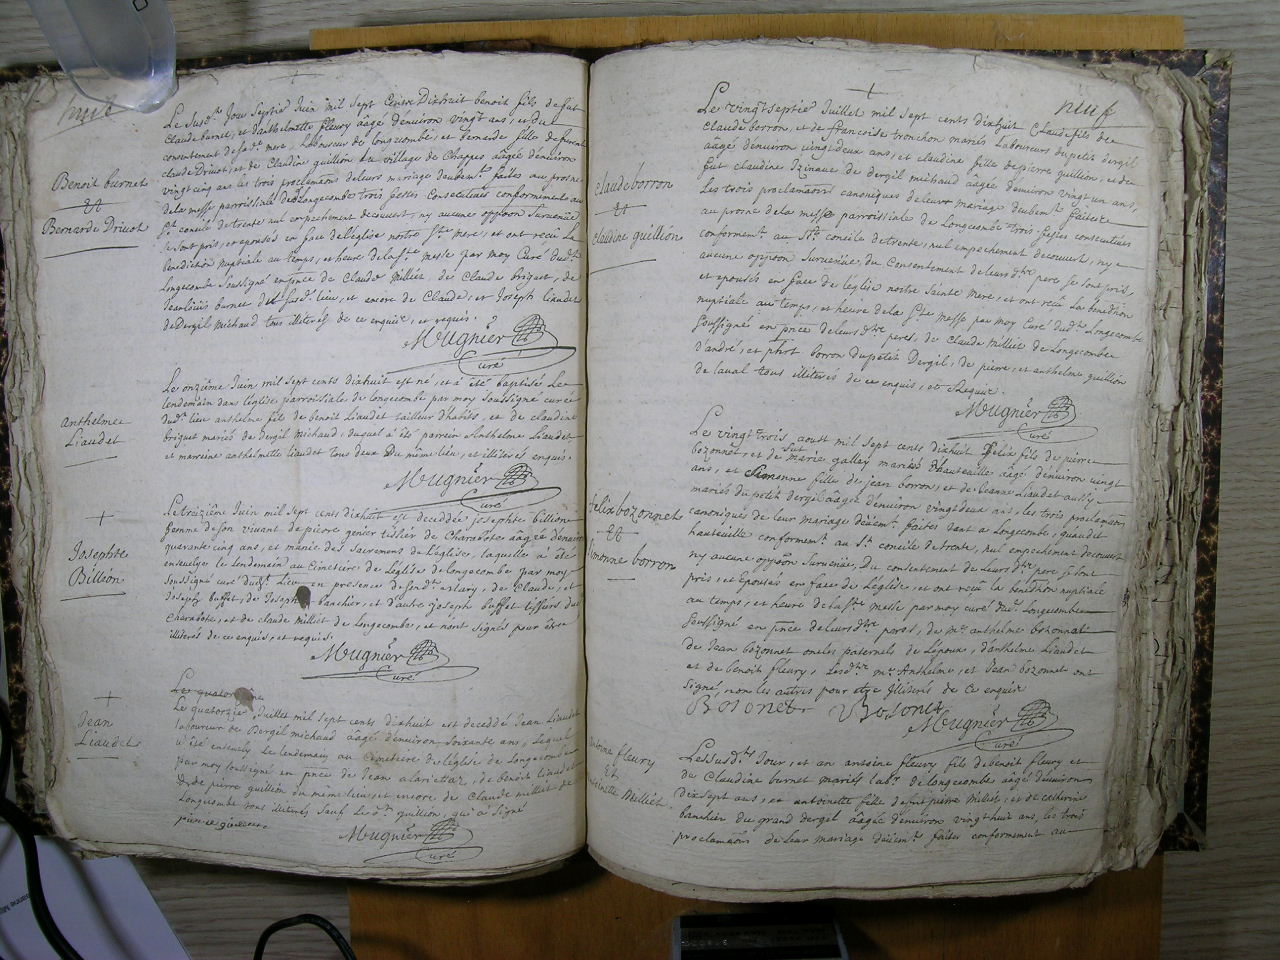 nuf
Le susd.t Jour septie Juin mil sept cents Dixhuit benoit fils de feu
Claude burnet, et d'anthelmette fleury aâgé denviron vingt ans, et du
consentement de sa d.te mere, Laboureur de longecombe, et bernarde fille de
claude Driuot, et de Claudine guillion du village de Chappes aâgée d'environ
vingt cinq ans les trois proclamaõns de leurs mariage deubem.t faites au prosne
de la messe parroissiale de Longecombe trois festes Consecutiues conformement au
S.t concile de trente nul empechement decouuert, ny aucune oppõon Suruenüe
se sont pris, et epousés en face de l'église nostre S.te mere, et ont reçü La
benediction nuptiale au temps, et heure de la S.te messe par moy Curé dud.t
Longecombe soussigné en p̃nce de Claude Milliet, de Claude briguet, de
Jean loüis burnet du susd.t lieu, et encore de Claude, et Joseph liaudet
de Dergil michaud tous illiterés de ce enquis, et requis.
Benoit burnet
et
Bernarde Driuot
Mugnier
Curé
Le onzième Juin mil sept cents dixhuit est né, et a été baptisé Le
lendemain dans l'eglise parroissiale de longecombe par moy soussigné curé
dud.t lieu anthelme fils de benoit Liaudet tailleur d'habits, et de claudine
briguet mariés de dergil michaud, duquel a été parrein Anthelme Liaudet
et marreine anthelmette liaudet tous deux du même lieu, et illiterés enquis.
Anthelme
Liaudet
Mugnier
Curé
Le treizième Juin mil sept cents dixhuit est decedée josephte billion
femme de son viuant de pierre genier tissier de Charabote aâgée denuiron
quarante cinq ans, et munie des sacremens de l'église, laquelle a été
enseuelye le lendemain au Cimetiere de l'église de longecombe par moy
soussigné curé dud.t Lieu en presence de de Claude, et
Joseph buffet, de Joseph bancher, et d'autre Joseph buffet tissiers du
Charabote, et de claude milliet de longecombe, et n'ont signés pour être
illiterés de ce enquis, et requis.
Josephte
Billéon
Mugnier
Curé
Le quatorzieme
Le quatorzie Juillet mil sept cents dixhuit est decedé Jean Liaudet
laboureur de Dergil michaud aâgé denuiron soixante ans, Lequel
a été enseuely le lendemain au Cimetiere de l'église de Longecombe
par moy soussigné en p̃nce de Jean de benoit liaudet
de pierre guillion du même lieu, et encore de Claude milliet de
Longecombe tous illiterés, sauf le d.t guillion, qui a signé
Jean
Liaudet
Mugnier
Curé
nuf
Le vingt septie Juillet mil sept cents dixhuit Claude fils de
claude borron, et de francoise tronchon mariés Laboureurs du petit dergil
aâgé denuiron vingt deux ans, et claudine fille de pierre guillion, et de
feüe claudine de dergil michaud aâgée denuiron vingt un ans,
Les trois proclamaõns canoniques de leur mariage deubem.t faites
au prosne de la messe parroissiale de Longecombe trois festes consecutiues
conformem.t au S.t concile de trente, nul empechement decouuert, ny
aucune oppõon Suruenüe, du Consentement de leurs d.ts pere se sont pris,
et epousés en face de leglise nostre sainte mere, et ont reçü la benedñon
nuptiale au temps, et heure de la S.te messe par moy Curé dud.t Longecombe
soussigné en p̃nce de leurs d.ts peres, de Claude Milliet de Longecombe
d'andré, et phi.t borron du petit Dergil, de pierre, et anthelme guillion
de laual tous illiterés de ce enquis, et Requis.
claude borron
et
claudine guillion
Mugnier
Curé
Le vingt trois aoust mil sept cents dixhuit felix fils de pierre
bozonnet, et de marie gallay mariés d'hauteuille aâgé denuiron vingt
ans, et simonne fille de jean borron, et de Jeanne Liaudet aussy
mariés du petit dergil aâgée denuiron vingt deux ans, les trois proclamaõns
canoniques de leur mariage deüem.t faites tant a Longecombe, qu'audit
hauteuille conformem.t au S.t concile de trente, nul empechement decouuert
ny aucune oppõon suruenüe, du consentement de leurs d.ts pere se sont
pris, et epousés en face de l'église, et ont reçü la benedñon nuptiale
au temps, et heure de la S.te messe par moy curé dud.t Longecombe
soussigné en p̃nce de leurs d.ts peres, de m.re anthelme bozonnet
de Jean bozonnet oncles paternels de Lépoux, d'anthelme liaudet
et de benoit fleury, Lesd.ts m.re Anthelme, et Jean bozonnet ont
signé, non les autres pour etre Illiterés de Ce enquis
felix bozonnet
et
Simonne borron
Bozonet Bosonet
Mugnier
Curé
Les susd.ts Jour, et an antoine fleury fils de benoit fleury et
du Claudine burnet mariés lab.rs de longecombe aâgé denuiron
dixsept ans, et antoinette fille de feu pierre Milliet, et de catherine
banchet du grand dergil aâgée denuiron vingt huit ans, les trois
proclamaõns de leur mariage deüem.t faites conformement au
antoine fleury
et
antoinette Milliet